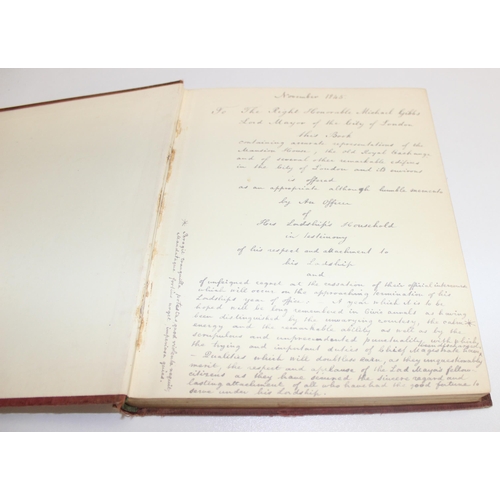 November 1845
To The Right Honorable Michael Gibbs
Lord Mayor of the City of London
This Book
containing accurate representations of the
Mansion House, the old Royal Exchange
and of several other remarkable edifices
in the City of London and its environs
is offered
as an appropriate although humble memento
by An Officer
of
His Lordship's Household
in testimony
of his respect and attachment to
his Lordship
and
of unfeigned regret at the cessation of their official intercourse
which will occur on the approaching termination of his
Lordships year of office. A year which it is to be
hoped will be long remembered in Civic annals as having
been distinguished by the unwearying exertion, the
energy and the remarkable ability as well as by the
scrupulous and unprecedented punctuality with which
the trying and important duties of Chief Magistrate have
been performed
- Qualities which will doubtless ensure, as they unquestionably
merit the respect and applause of the Lord Mayor's fellow
citizens as they have secured the sincere regard and
lasting attachment of all who have had the good fortune to
serve under his Lordship.